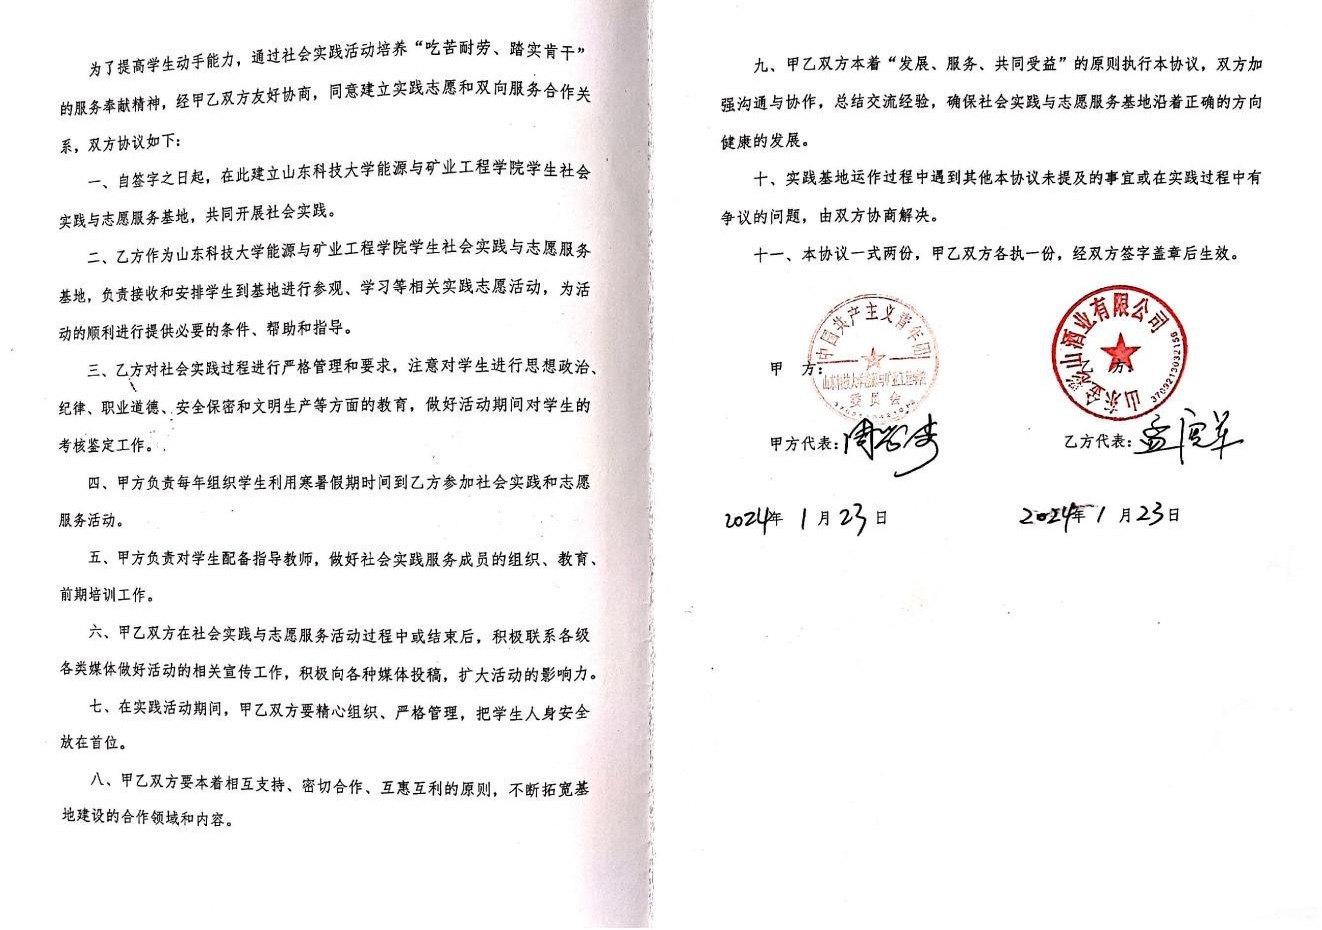 为了提高学生动手能力，通过社会实践活动培养“吃苦耐劳、踏实肯干”
的服务奉献精神，经甲乙双方友好协商，同意建立实践志愿和双向服务合作关
系，双方协议如下：
一、自签字之日起，在此建立山东科技大学能源与矿业工程学院学生社会
实践与志愿服务基地，共同开展社会实践。
二、乙方作为山东科技大学能源与矿业工程学院学生社会实践与志愿服务
基地，负责接收和安排学生到基地进行参观、学习等相关实践志愿活动，为活
动的顺利进行提供必要的条件、帮助和指导。
三、乙方对社会实践过程进行严格管理和要求，注意对学生进行思想政治、
纪律、职业道德、安全保密和文明生产等方面的教育，做好活动期间对学生的
考核鉴定工作。
四、甲方负责每年组织学生利用寒暑假期时间到乙方参加社会实践和志愿
服务活动。
五、甲方负责对学生配备指导教师，做好社会实践服务成员的组织、教育、
前期培训工作。
六、甲乙双方在社会实践与志愿服务活动过程中或结束后，积极联系各级
各类媒体做好活动的相关宣传工作，积极向各种媒体投稿，扩大活动的影响力。
七、在实践活动期间，甲乙双方要精心组织、严格管理，把学生人身安全
放在首位。
八、甲乙双方要本着相互支持、密切合作、互惠互利的原则，不断拓宽基
地建设的合作领域和内容。
九、甲乙双方本着“发展、服务、共同受益”的原则执行本协议，双方加
强沟通与协作，总结交流经验，确保社会实践与志愿服务基地沿着正确的方向
健康的发展。
十、实践基地运作过程中遇到其他本协议未提及的事宜或在实践过程中有
争议的问题，由双方协商解决。
十一、本协议一式两份，甲乙双方各执一份，经双方签字盖章后生效。
中国共产主义青年团
山东科技大学能源与矿业工程学院
委员会
甲 方：
山东金彩山酒业有限公司
乙 方：
3709213032159
甲方代表：
乙方代表：孟
2024年1月23日
2024年1月23日